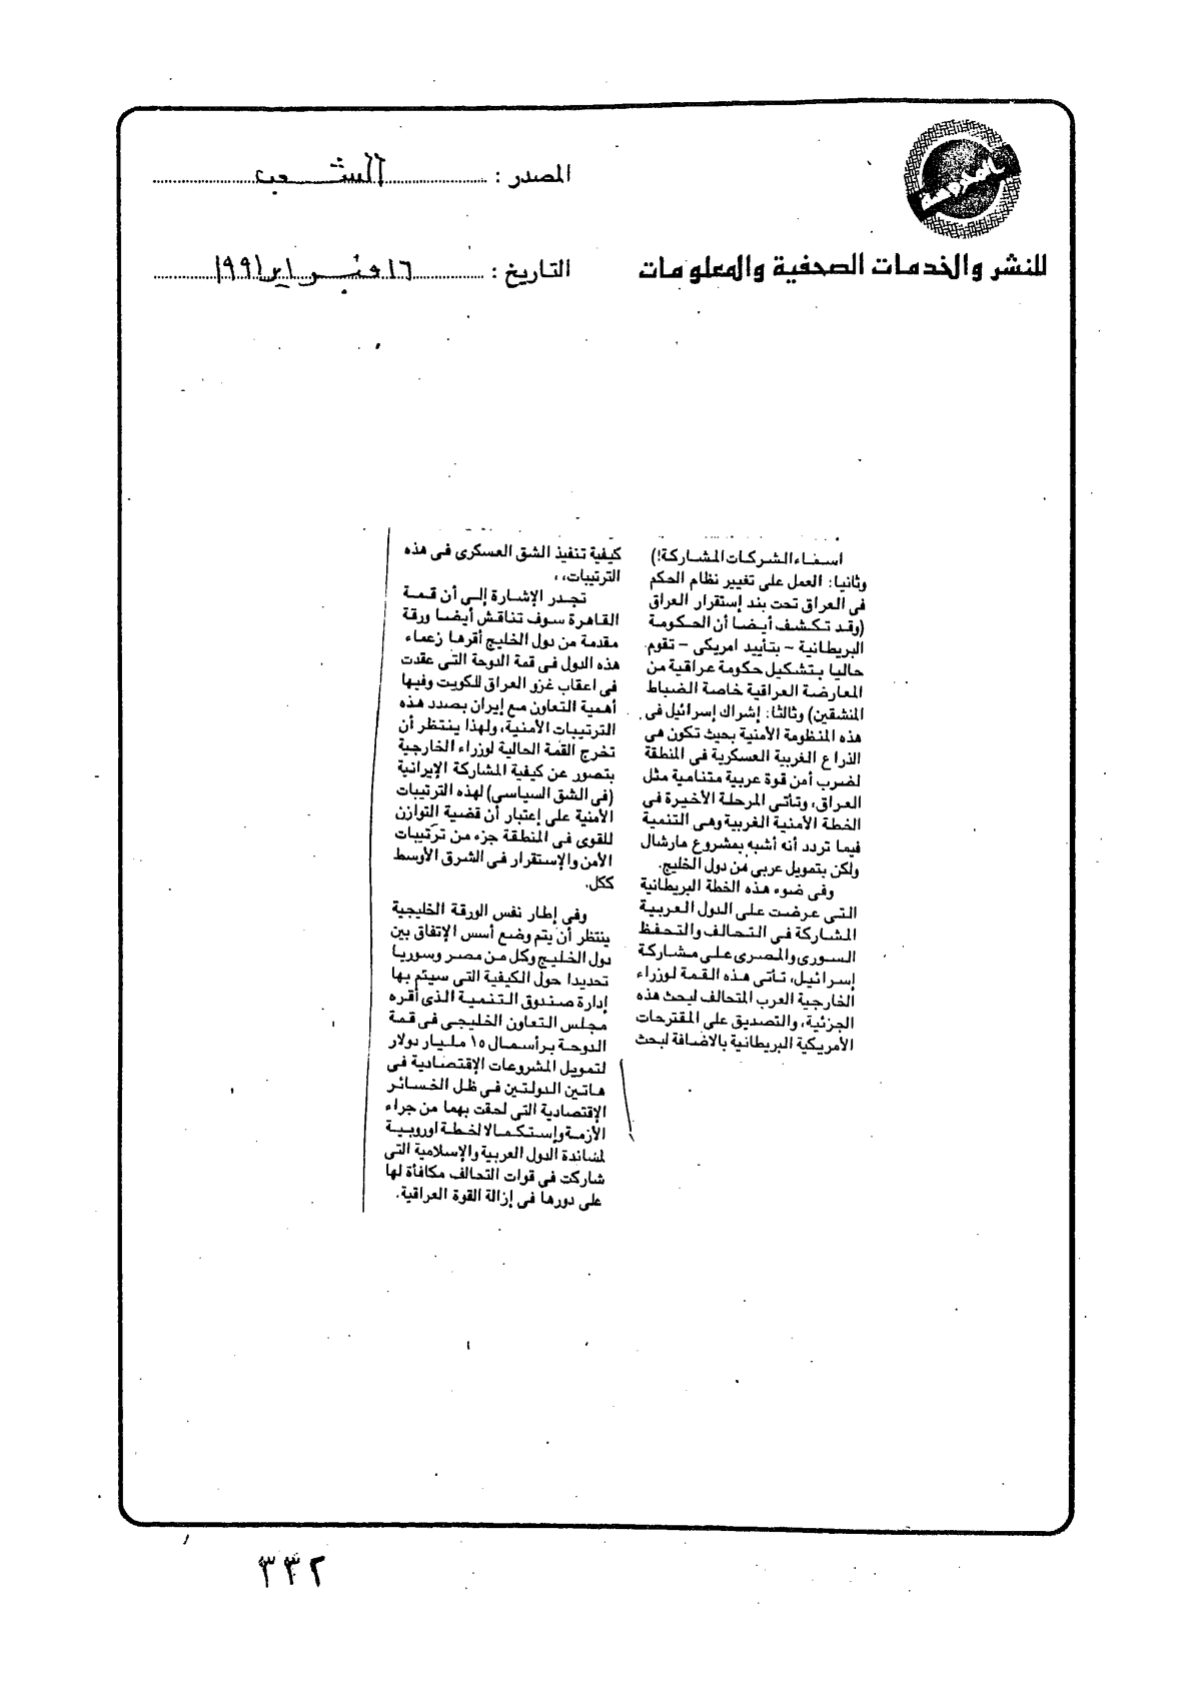 المصدر : الشعب
للنشر والخدمات الصحفية والمعلومات
التاريخ : ١٦ فبراير ١٩٩١
أسماء الشركات المشاركة!)
وثانيا: العمل على تغيير نظام الحكم
فى العراق تحت بند إستقرار العراق
(وقد تكشف أيضا أن الحكومة
البريطانية - بتأييد امريكى - تقوم
حاليا بتشكيل حكومة عراقية من
المعارضة العراقية خاصة الضباط
المنشقين) وثالثا: إشراك إسرائيل فى
هذه المنظومة الأمنية بحيث تكون هى
الذراع الغربية العسكرية فى المنطقة
لضرب أمن قوة عربية متنامية مثل
العراق، وتأتى المرحلة الأخيرة فى
الخطة الأمنية الغربية وهى التنمية
فيما تردد أنه أشبه بمشروع مارشال
ولكن بتمويل عربى من دول الخليج.
وفى ضوء هذه الخطة البريطانية
التى عرضت على الدول العربية
المشاركة فى التحالف والتحفظ
السورى والمصرى على مشاركة
إسرائيل، تأتى هذه القمة لوزراء
الخارجية العرب المتحالف لبحث هذه
الجزئية، والتصديق على المقترحات
الأمريكية البريطانية بالاضافة لبحث
كيفية تنفيذ الشق العسكرى فى هذه
الترتيبات،،
تجدر الإشارة إلى أن قمة
القاهرة سوف تناقش أيضا ورقة
مقدمة من دول الخليج أقرها زعماء
هذه الدول فى قمة الدوحة التى عقدت
فى اعقاب غزو العراق للكويت وفيها
أهمية التعاون مع إيران بصدد هذه
الترتيبات الأمنية، ولهذا ينتظر أن
تخرج القمة الحالية لوزراء الخارجية
بتصور عن كيفية المشاركة الإيرانية
(فى الشق السياسى) لهذه الترتيبات
الأمنية على إعتبار أن قضية التوازن
للقوى فى المنطقة جزء من ترتيبات
الأمن والإستقرار فى الشرق الأوسط
ككل.
وفى إطار نفس الورقة الخليجية
ينتظر أن يتم وضع أسس الإتفاق بين
دول الخليج وكل من مصر وسوريا
تحديدا حول الكيفية التى سيتم بها
إدارة صندوق التنمية الذى أقره
مجلس التعاون الخليجى فى قمة
الدوحة برأسمال ١٥ مليار دولار
لتمويل المشروعات الإقتصادية فى
هاتين الدولتين فى ظل الخسائر
الإقتصادية التى لحقت بهما من جراء
الأزمة وإستكمالا لخطة اوروبية
لمساندة الدول العربية والإسلامية التى
شاركت فى قوات التحالف مكافأة لها
على دورها فى إزالة القوة العراقية.
٣٣٢